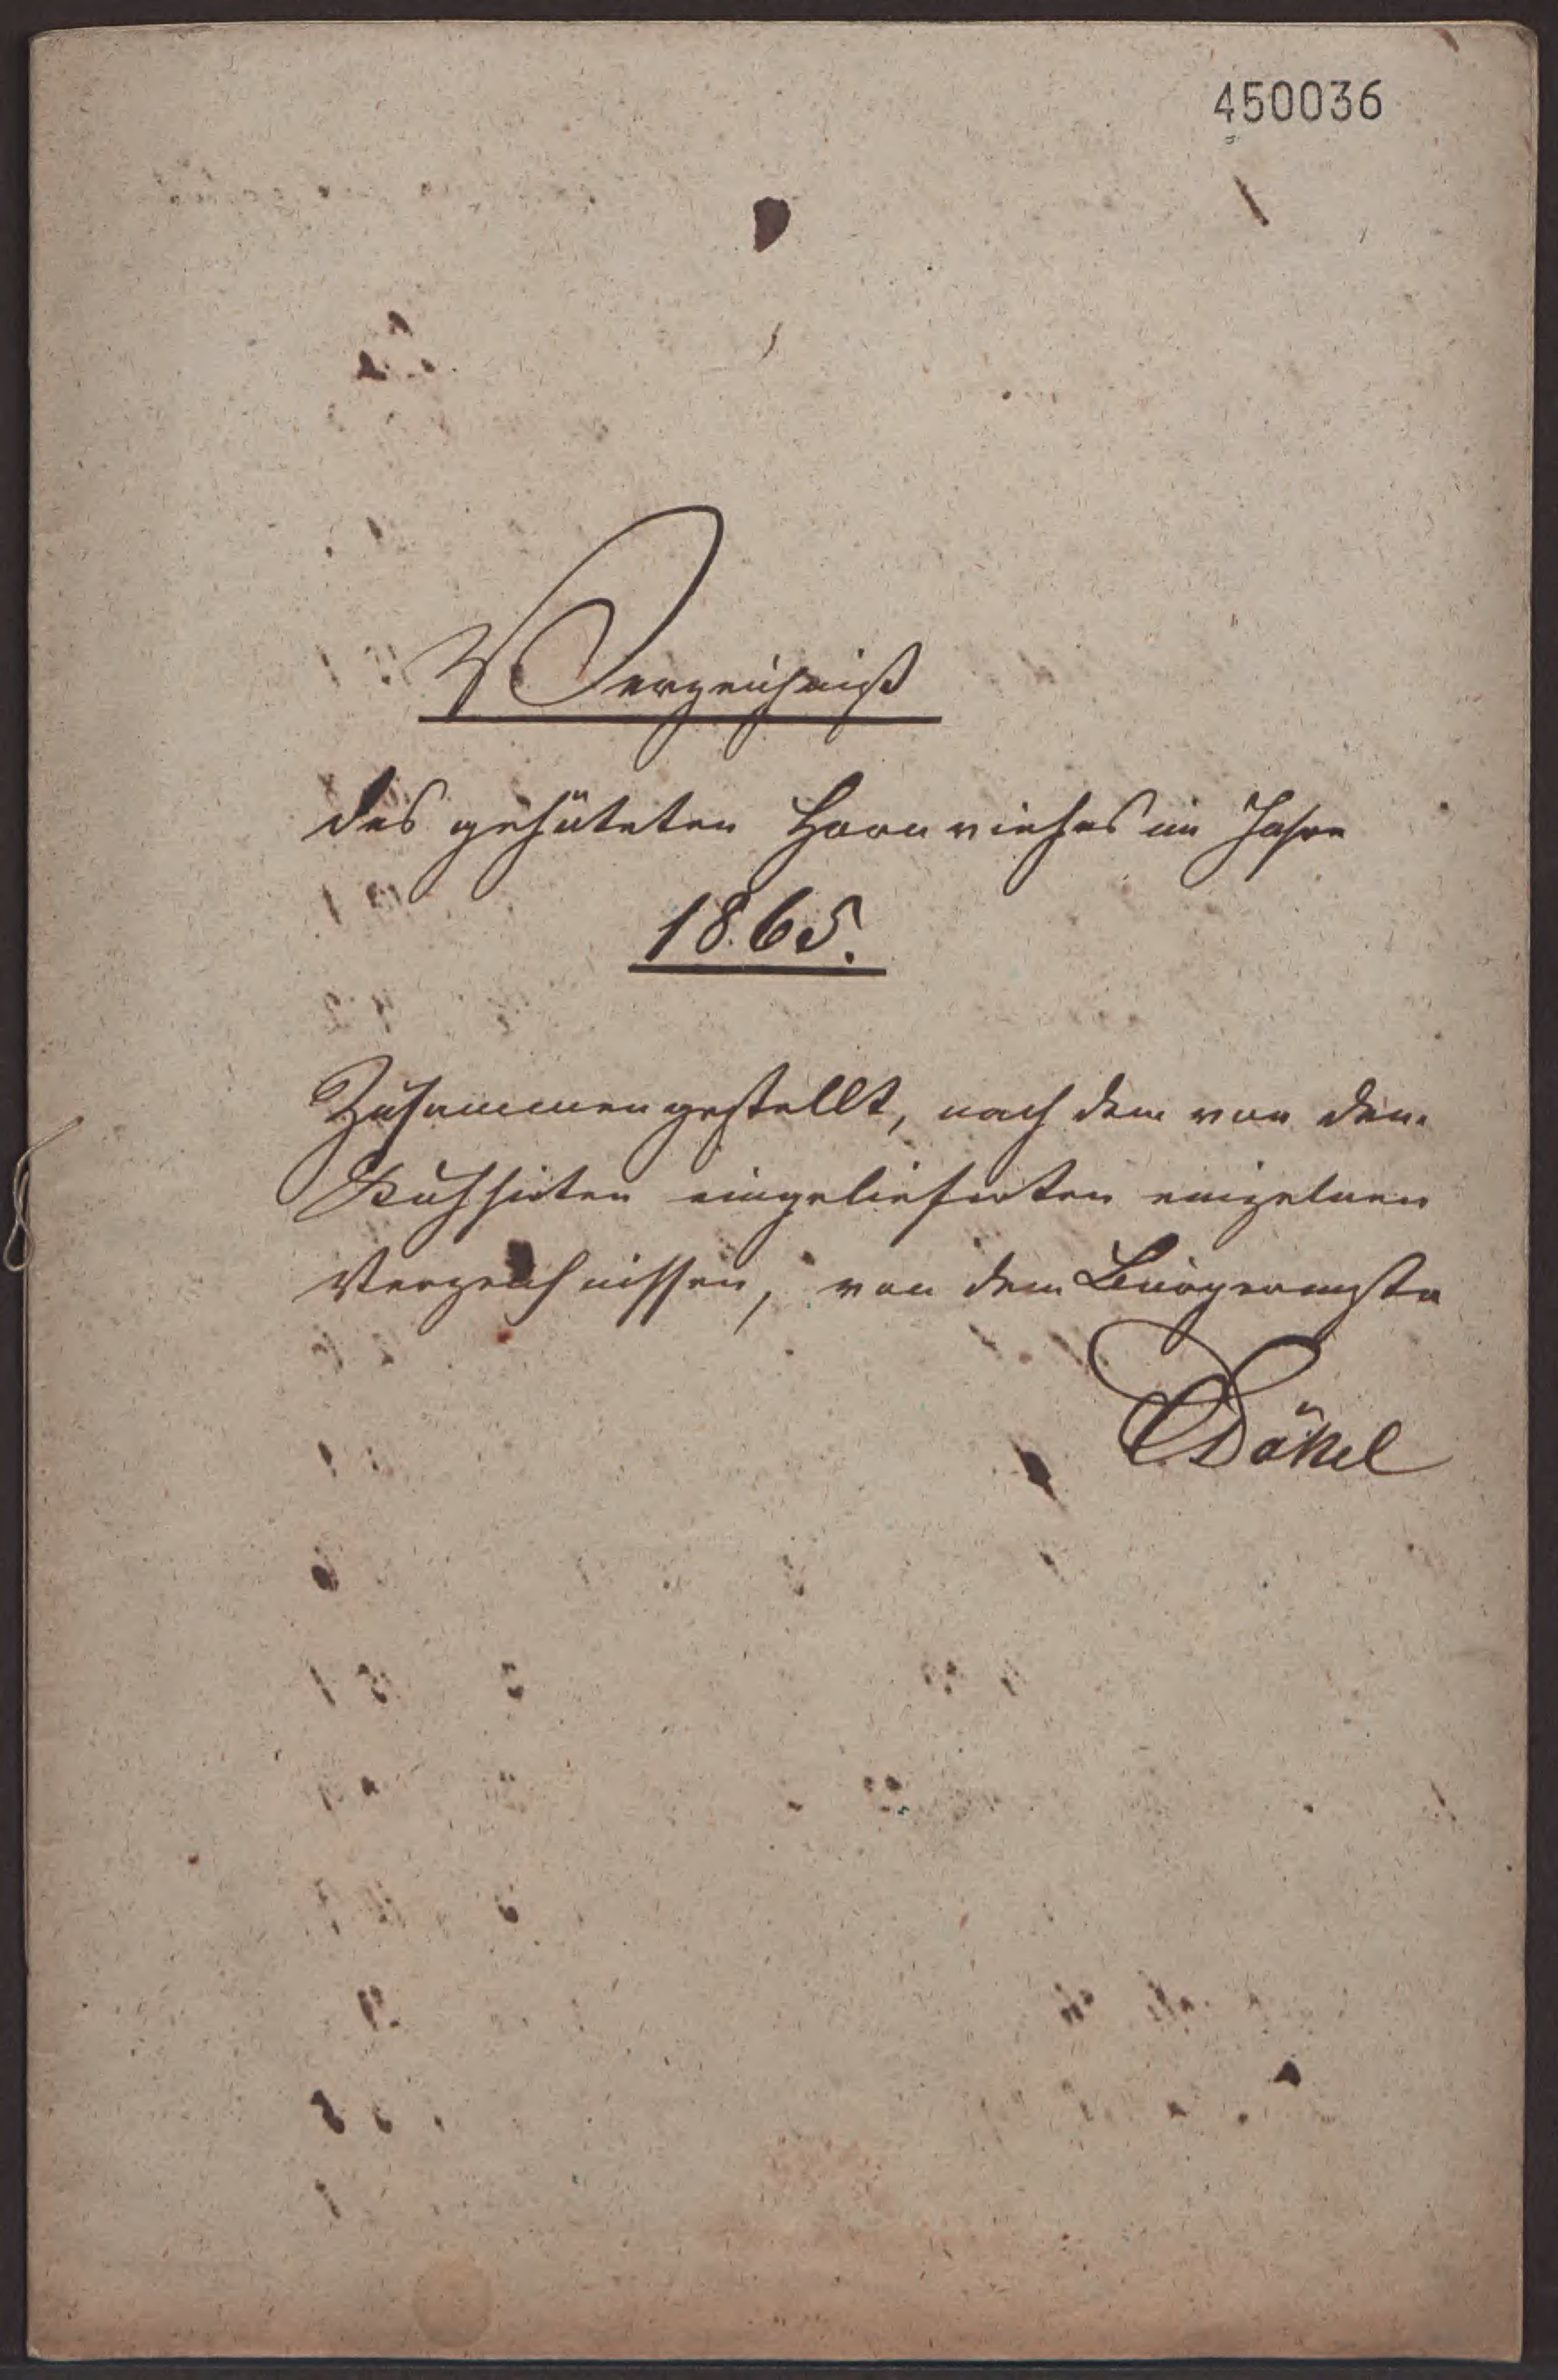 450036
Verzeichniß
des gehüteten Hornviehes im Jahre
1865.
Zusammengestellt, nach dem von den
Kuhhirten eingelieferten einzelnen
Verzeichnissen, von dem Bürgermstr
Däkel